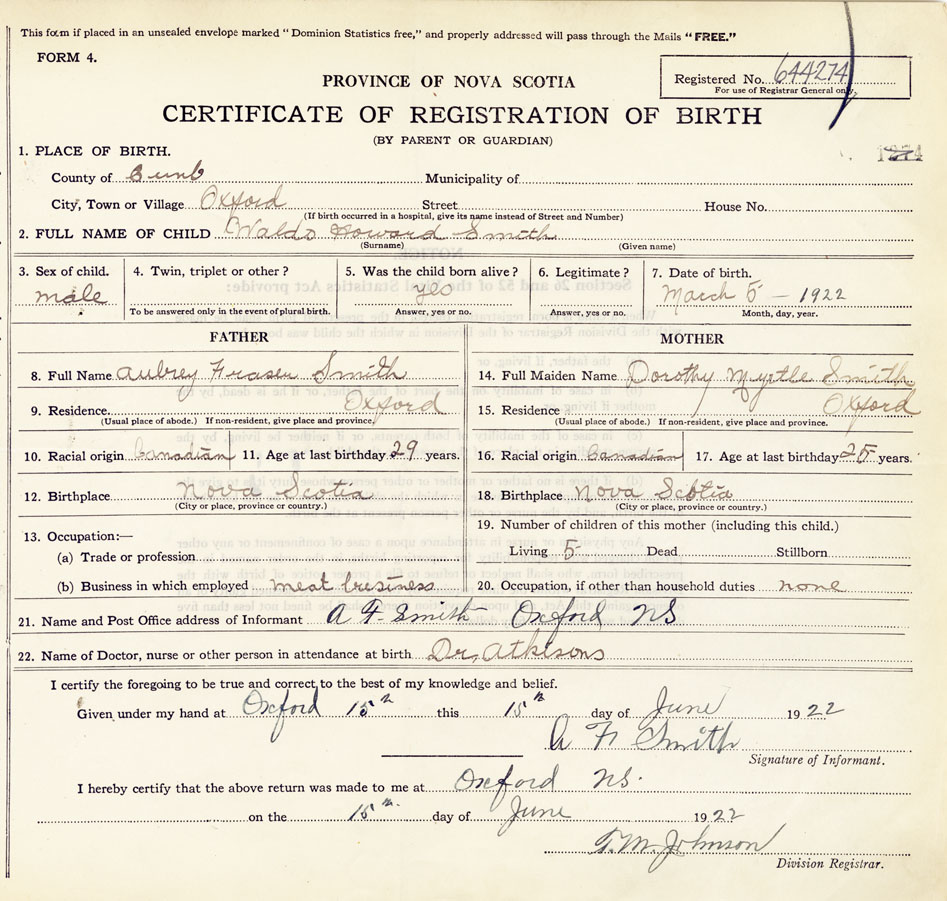 This form if placed in an unsealed envelope marked "Dominion Statistics free," and properly addressed will pass through the Mails "FREE."
FORM 4.
PROVINCE OF NOVA SCOTIA
Registered No. 644274
For use of Registrar General only.
CERTIFICATE OF REGISTRATION OF BIRTH
(BY PARENT OR GUARDIAN)
1. PLACE OF BIRTH.
County of Cumb Municipality of
City, Town or Village Oxford Street House No.
(If birth occurred in a hospital, give its name instead of Street and Number)
2. FULL NAME OF CHILD Waldo Howard Smith
(Surname) (Given name)
3. Sex of child. 4. Twin, triplet or other? 5. Was the child born alive? 6. Legitimate? 7. Date of birth.
male yes March 5 - 1922
To be answered only in the event of plural birth. Answer, yes or no. Answer, yes or no. Month, day, year.
FATHER MOTHER
8. Full Name Aubrey Fraser Smith 14. Full Maiden Name Dorothy Myrtle Smith
9. Residence Oxford 15. Residence Oxford
(Usual place of abode.) If non-resident, give place and province. (Usual place of abode.) If non-resident, give place and province.
10. Racial origin Canadian 11. Age at last birthday 29 years. 16. Racial origin Canadian 17. Age at last birthday 25 years.
12. Birthplace Nova Scotia 18. Birthplace Nova Scotia
(City or place, province or country.) (City or place, province or country.)
13. Occupation:— 19. Number of children of this mother (including this child.)
(a) Trade or profession Living 5 Dead Stillborn
(b) Business in which employed meat business 20. Occupation, if other than household duties none
21. Name and Post Office address of Informant A F. Smith Oxford NS
22. Name of Doctor, nurse or other person in attendance at birth Dr. Atkisons
I certify the foregoing to be true and correct to the best of my knowledge and belief.
Given under my hand at Oxford 15th this 15th day of June 1922
A F Smith
Signature of Informant.
I hereby certify that the above return was made to me at Oxford NS.
on the 15th day of June 1922
T. M. Johnson
Division Registrar.